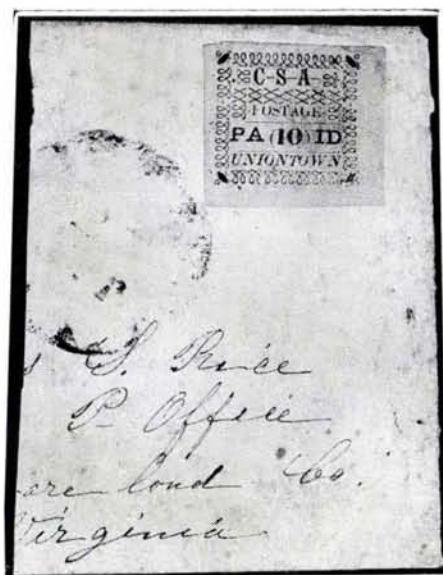 C-S-A-
POSTAGE
PA (10) ID
UNIONTOWN
s S. Rice
P- Office
ore land Co.
Virginia